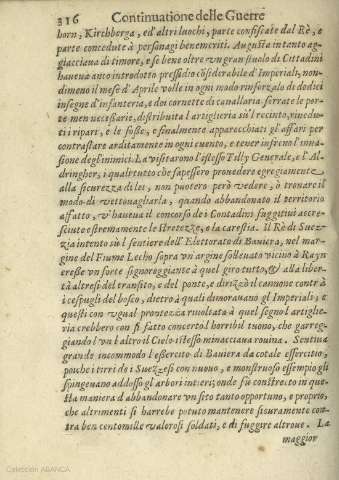 316 Continuatione delle Guerre
born, Kirchberga, ed'altri luochi, parte confiscate dal Rè, e
parte concedute à personagi benemeriti. Augusta intanto ag-
giacciaua di timore, e se bene oltre vn gran stuolo di Cittadini
haueua anco introdotto pressidio cósiderabile d'Imperiali, non-
dimeno il mese d'Aprile volle in ogni modo rinforzalo di dodici
insegne d'infanteria, e doi cornette di cauallaria. serrate le por-
te men necessarie, distribuita l'artiglieria sù'l recinto, riuedu-
ti i ripari, e le fosse, e finalmente apparecchiati gl'affari per
contrastare arditamente in ogni euento, e tener in freno l'inua-
sione degl'inimici. La visitarono l'istesso Tilly Generale, e l'Al-
dringher, i quali tutto che sapessero prouedere egregiamente
alla sicurezza di lei, non puotero però vedere, ò trouare il
modo di vettouagliarla, quando abbandonato il territorio
affatto, vi haueua il concorso de i Contadini fuggitiui accre-
sciuto estremamente le strettezze, e la carestia. Il Rè di Suez-
zia intento sù'l sentiero dell'Elettorato di Bauiera, nel mar-
gine del Fiume Lecho sopra vn'argine solleuato vicino à Rayn
eresse vn forte signoreggiante à quel giro tutto, & alla liber-
tà altresì del transito, e del ponte, e dirizzò il cannone contrà
i cespugli del bosco, dietro à quali dimorauano gl'Imperiali, e
questi con vgual prontezza riuoltata à quel segno l'artiglie-
ria crebbero con sì fatto concerto l'horribil tuono, che gareg-
giando l'vn l'altro il Cielo istesso minacciaua rouina. Sentiua
grande incommodo l'essercito di Bauiera da cotale essercitio,
poiche i tirri de i Suezzesi con nuouo, e monstruoso essempio gli
spingeuano addosso gl'arbori intieri; onde fù constretto in que-
sta maniera d'abbandonare vn sito tanto opportuno, e proprio,
che altrimenti si harrebe potuto mantenere sicuramente con-
tra ben cento mille valorosi soldati, e di fuggire altroue. La
maggior
Colección ABANCA